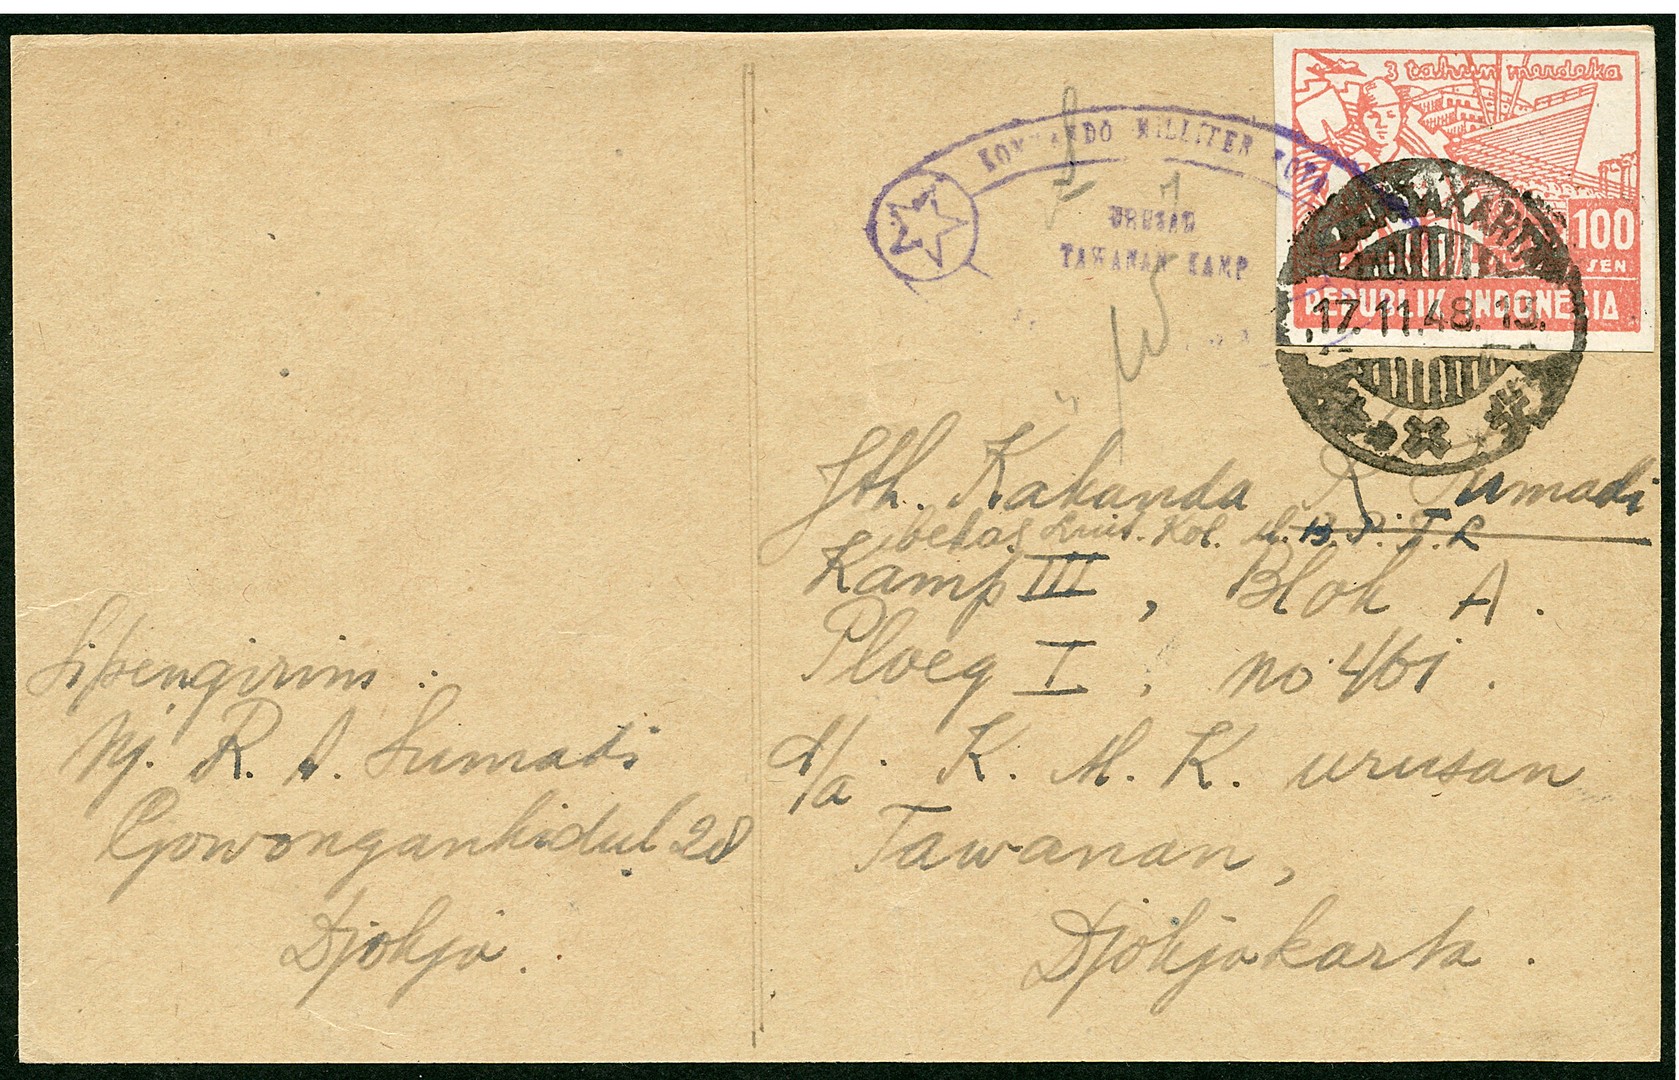 3 tahun merdeka
100
SEN
REPUBLIK INDONESIA
KOMMANDO MILLITER KOTA
URUSAN
TAWANAN KAMP
17.11.48.13.
Jth. Kakanda R. Sumadi
bekas Luit. Kol. M.B.P.T.L
Kamp III, Blok A.
Ploeg I, no 461.
d/a. K. M. K. urusan
Tawanan,
Djokjakarta.
Sipengirim.
Nj. R. A. Sumadi
Gowongankidul 28
Djokja.